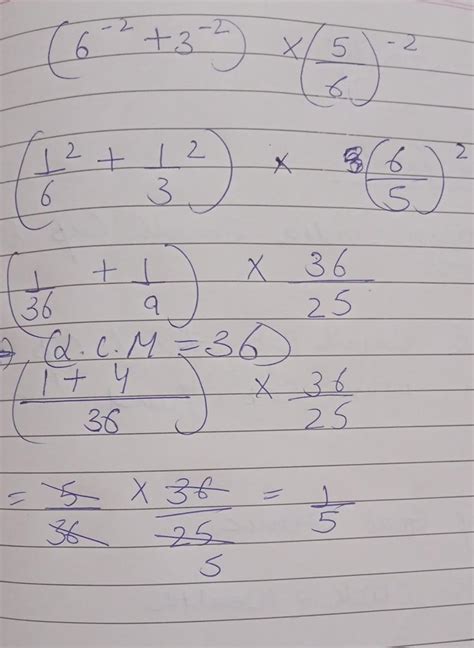 (6⁻² + 3⁻²) × (5/6)⁻²
(1/6² + 1/3²) × (6/5)²
(1/36 + 1/9) × 36/25
⇒ (L.C.M = 36)
(1 + 4/36) × 36/25
= 5/36 × 36/25 = 1/5
5